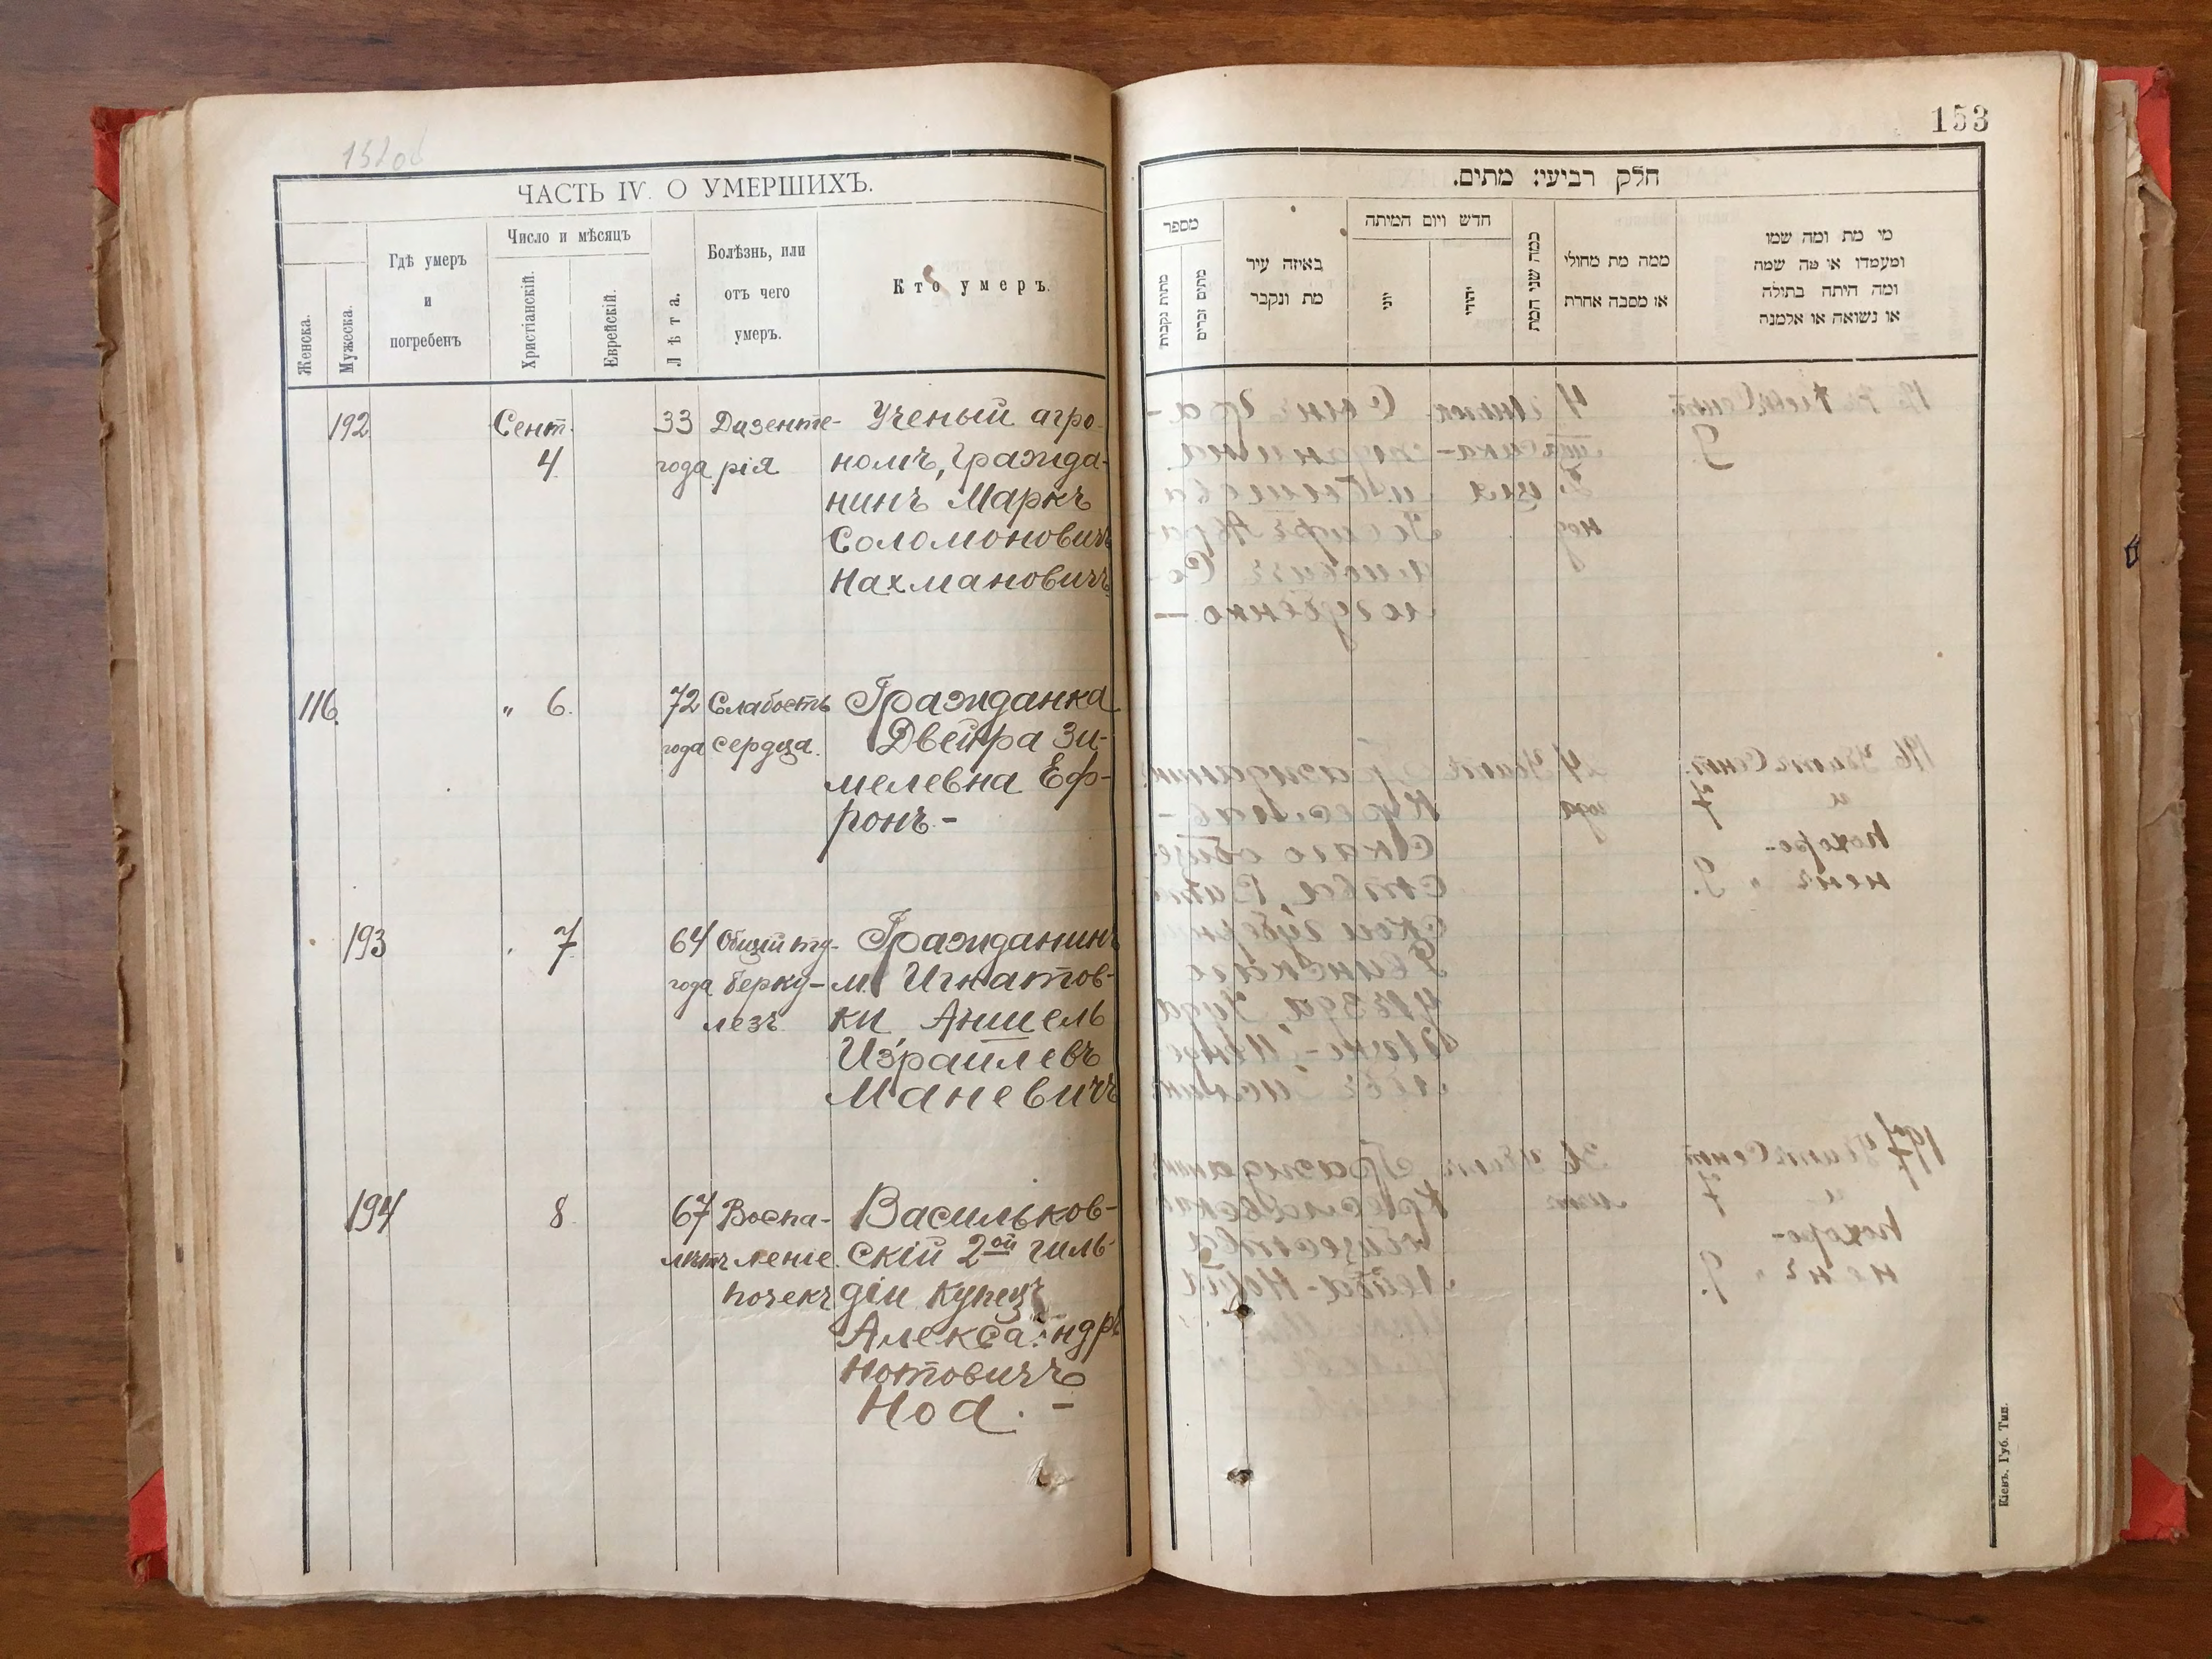 152об
ЧАСТЬ IV. О УМЕРШИХЪ.
Женска.
Мужеска.
Гдѣ умеръ
и
погребенъ
Число и мѣсяцъ
Христіанскій.
Еврейскій.
Лѣта.
Болѣзнь, или
отъ чего
умеръ.
Кто умеръ.
192 Сент. 33 Дизенте- Ученый агро-
4 года рія номъ, гражда-
нинъ Маркъ
Соломоновичъ
Нахмановичъ
116 " 6. 72 Слабость Гражданка
года сердца. Двейра Зи-
мелевна Еф-
ронъ.-
193 " 7 64 Общій ту- Гражданинъ
года берку- м. Игнатов-
лезъ ки Аншель
Израилевъ
Маневичъ
194 8 67 Воспа- Васильков-
лѣтъ леніе скій 2ой гиль-
почекъ діи купецъ
Александръ
Нотовичъ
Ноа. -
153
חלק רביעי: מתים.
מספר
מתות נקבות
מתים זכרים
באיזה עיר
מת ונקבר
חדש ויום המיתה
יוני
יהודי
כמה שני המת
ממה מת מחולי
או מסבה אחרת
מי מת ומה שמו
ומעמדו או מה שמה
ומה היתה בתולה
או נשואה או אלמנה
Кіевъ. Губ. Тип.